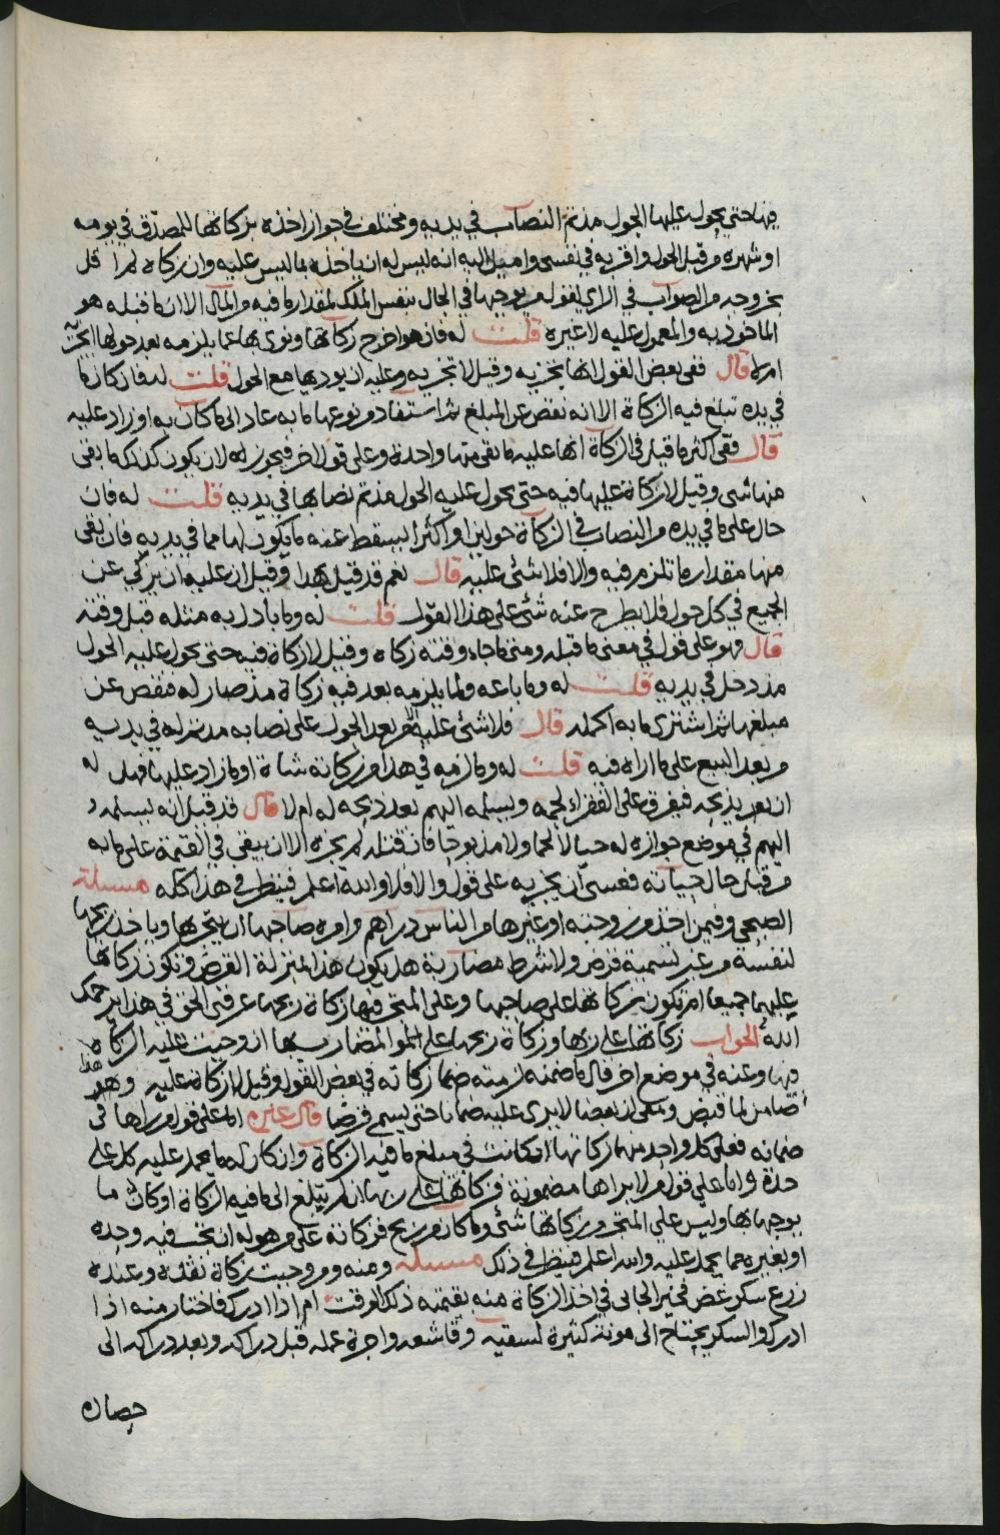 فيها حتى يحول عليها الحول مذ تم النصاب في يديه ومختلف في جواز اخذه بزكاتها للمصدق في يومه
او شهره من قبل الحول واقربه في نفسي واميل اليه انه ليس له ان ياخذه بما ليس عليه وان زكاه لم اقل
بخروجه من الصواب في الراي لقول من يوجبها في الحال بنفس الملك لمقدار ما فيه من المال الا ان ما قبله هو
الماخوذ به والمعمول عليه لا غيره قلت له فان هو اخرج زكاتها ونوى بها عما يلزمه بعد حولها اتجزيه
ام لا قال ففي بعض القول انها تجزيه وقيل لا تجزيه وعليه ان يوديها مع الحول قلت له فان كان ما
في يده تبلغ فيه الزكاة الا انه نقص عن المبلغ ثم استفاد من نوعها ما به عاد الى ما كان به او زاد عليه
قال ففي اكثر ما قيل في الزكاة انها عليه ما بقي منها واحدة وعلى قول اخر فيجوز له لان يكون كذلك ما بقي
منها شي وقيل لا زكاة عليها فيه حتى يحول عليه الحول مذ تم نصابها في يديه قلت له فان
حال على ما في يده من النصاب في الزكاة حولين او اكثر ايسقط عنه ما يكون لها مما في يديه فان بقى
منها مقدار ما تلزم فيه والا فلا شئ عليه قال نعم قد قيل بهذا وقيل ان عليه ان يزكي عن
الجميع في كل حول فلا يطرح عنه شئ على هذا القول قلت له وما بادل به مثله قبل وقته
قال فهو على قول في معنى ما قبله ومتى ما جاء وقته زكاه وقيل لا زكاة فيه حتى يحول عليه الحول
مذ دخل في يديه قلت له وما باعه ولما يلزمه بعد فيه زكاة مذ صار له فنقص عن
مبلغها ثم اشترى ما به اكمله قال فلا شئ عليه من بعد الحول على نصابه مذ تم له في يديه
من بعد البيع على ما اراه فيه قلت له وما لزمه في هذا من زكاته شاة او ما زاد عليها فهل له
ان يعد يذبحه فيفرق على الفقراء لحمه ويسلمه اليهم بعد ذبحه له ام لا قال قد قيل انه يسلمه
اليهم في موضع جوازه له حيا لا لحما ولا مذبوحا فان قتله لم يجزه الا ان يبقى في القيمة على ما به
من قبل حال حياته فعسى ان يجزيه على قول والا فلا والله اعلم فينظر في هذا كله مسئلة
الصبحي وفيمن اخذ من زوجته او غيرها من الناس دراهم وامره صاحبها ان يتجر بها وياخذ ربحها
لنفسه من غير تسمية قرض ولا شرط مضاربة هل يكون هذا بمنزلة القرض وتكون زكاتها
عليهما جميعا ام تكون زكاتها على صاحبها وعلى المتجر فيها زكاة ربحها عرفني الحق في هذا يرحمك
الله الجواب زكاتها على ربها وزكاة ربحها على المضارب بها ان وجبت عليه الزكاة
فيها وعنه في موضع اخر قال ما ضمنه لزمته ضما زكاته في بعض القول وقيل لا زكاة عليه وهو هذا
ضامن لما قبض ومعي ان بعضا لا يرى عليه ضمانا حتى يسمي قرضا قال غيره اما على قول من راها في
ضمانه فعلى كل واحد منهما زكاتها ان كانت في مبلغ ما فيه الزكاة وان كان له ما يحمله عليه كل على
حدة واما على قول من لا يراها مضمونة فزكاتها على ربها ان لم تبلغ الى ما فيه الزكاة او كان له ما
يوجبها بها وليس على المتجر من زكاتها شئ وما كان من ربح فزكاته على من هو له ان تجب فيه وحده
او بغيره مما يحمل عليه والله اعلم فينظر في ذلك مسئلة ومنه ومن وجبت زكاة نقده وعنده
زرع سكر غض فخير الجابي في اخذ الزكاة منه بقيمته ذلك الوقت ام اذا ادرك فاختار منه اذا
ادرك والسكر يحتاج الى مونة كثيرة لسقيه وقاشعه واجرة عمله قبل دراكه وبعد دراكه الى
حصاده